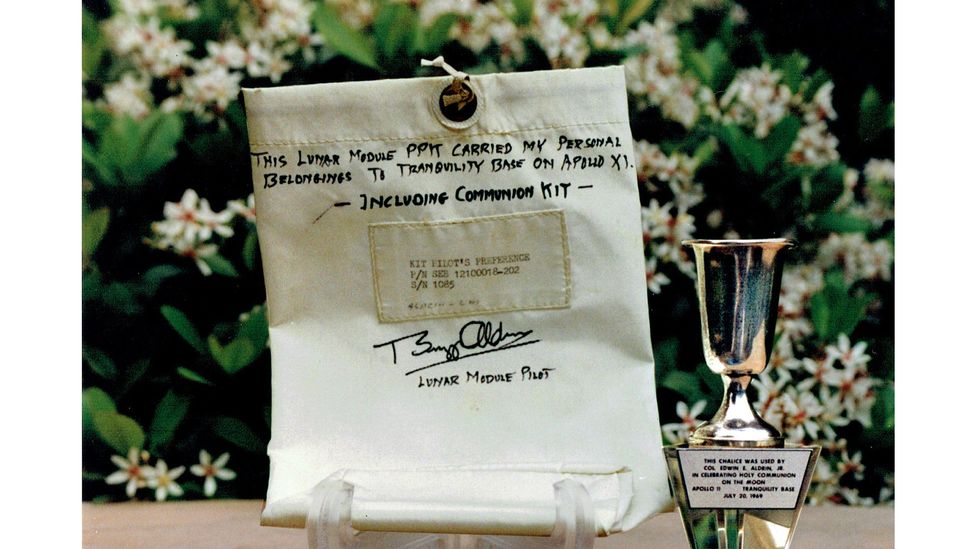 THIS LUNAR MODULE PPK CARRIED MY PERSONAL
BELONGINGS TO TRANQUILITY BASE ON APOLLO XI.
— INCLUDING COMMUNION KIT —
KIT PILOT'S PREFERENCE
P/N SEB 12100018-202
S/N 1085
Buzz Aldrin
LUNAR MODULE PILOT
THIS CHALICE WAS USED BY
COL. EDWIN E. ALDRIN, JR.
IN CELEBRATING HOLY COMMUNION
ON THE MOON
APOLLO 11 TRANQUILITY BASE
JULY 20, 1969